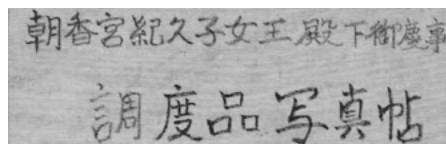 朝香宮紀久子女王殿下御慶事
調度品写真帖